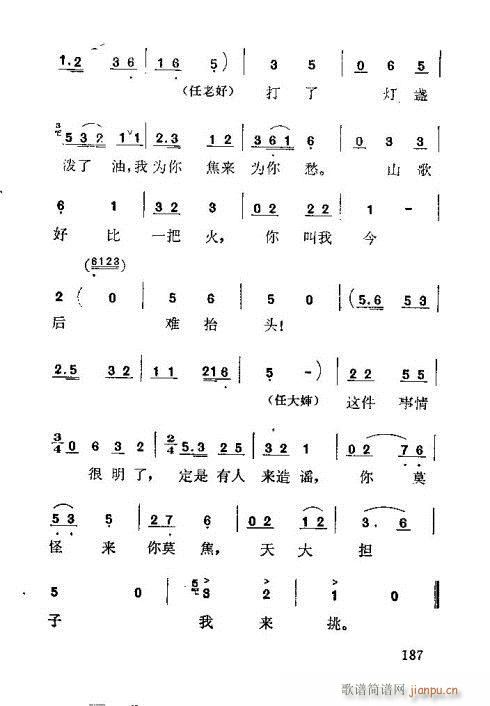 1.2 3 6 | 1 6 5 ) | 3 5 | 0 6 5
(任老好) 打 了 灯 盏
3/4 5 3 2 1 1 | 2.3 1 2 | 3 6 1 6 | 0 3 3
泼了 油,我为你 焦来 为你 愁。 山 歌
6 1 | 3 2 3 | 0 2 2 2 | 1 -
好 比 一把 火, 你 叫我 今
(6123)
2 ( 0 | 5 6 | 5 0 | (5.6 5 3
后 难 抬 头!
2.5 3 2 | 1 1 2 1 6 | 5 - ) | 2 2 5 5
(任大婶) 这件 事情
3/4 0 6 3 2 | 2/4 5.3 2 5 | 2 2 3 | 0 2 7 6
很 明 了, 定是 有人 来造 谣, 你 莫
5 3 5 | 2 7 6 | 0 2 1 2 | 3. 6
怪 来 你莫 焦, 天 大 担
5 0 | 5 3 2 | 1 0 ‖
子 我 来 挑。
187
歌谱简谱网
jianpu.cn